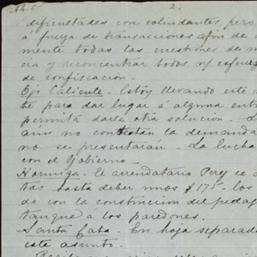 2.
dificultades con colindantes pero
á fuerza de transacciones afin de
mente todas las cuestiones de m
cia y reconcentrar todos n/ esfuer
de confiscacion.
Ojo Caliente. Estoy llevando este a
te para dar lugar á alguna entr
permita darle otra solucion. L
aun no contestan la demanda
no se presentarán. La lucha
con el Gobierno.
Hormiga. El arrendatario Perez se a
tas hasta deber unos $175. los
do con la construccion del pedaz
tanque a los paredones.
Santa Cata. En hoja separada
este asunto.